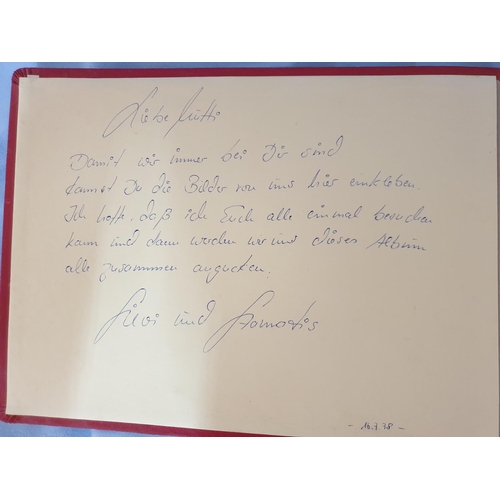 Liebe Mutti
Damit wir immer bei Dir sind
kannst Du die Bilder von uns hier einkleben.
Ich hoffe, daß ich Euch alle einmal besuchen
kann und dann werden wir uns dieses Album
alle zusammen angucken.
Silvi und